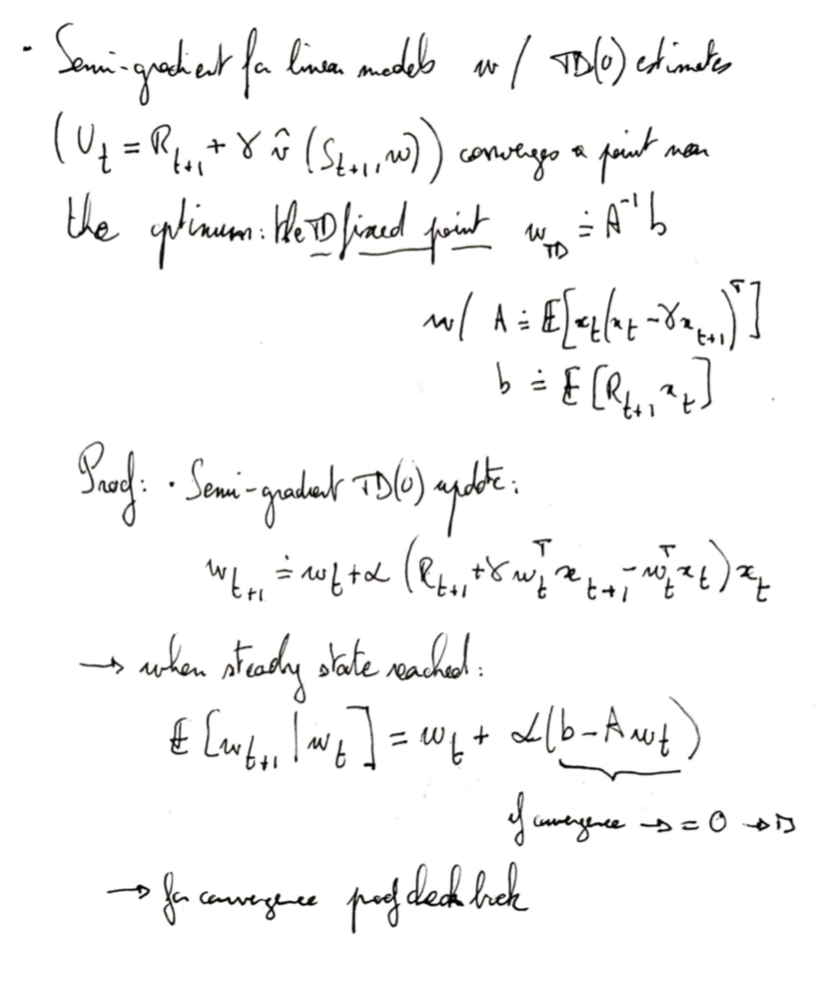 · Semi-gradient for linear models w/ TD(0) estimates
(U_t = R_{t+1} + γ v̂ (S_{t+1}, w)) converges a point near
the optimum: the TD fixed point w_TD ≐ A⁻¹ b
w/ A ≐ 𝔼[x_t(x_t - γx_{t+1})^T]
b ≐ 𝔼[R_{t+1} x_t]
Proof: · Semi-gradient TD(0) update:
w_{t+1} ≐ w_t + α (R_{t+1} + γ w_t^T x_{t+1} - w_t^T x_t) x_t
→ when steady state reached:
𝔼[w_{t+1} | w_t] = w_t + α(b - A w_t)
if convergence → = 0 → ▷
→ for convergence proof check book